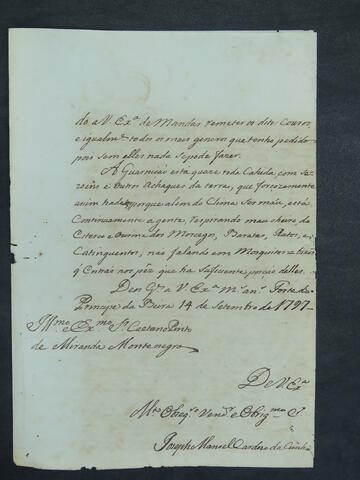 do a V. Exª de Mandar remeter os ditos Couros,
e igualmᵉ todos os mais generos que tenho pedido
pois sem elles nada se pode fazer.
A Guarnicaó está quaze toda Cahida, com Se-
zoẽs e outros Achaques da terra, que forcozamente
asim hade porque alem do Clima Ser máu, está
Continuamente a gente, respirando mau cheiro do
Esterco e Ourina dos Morcegos, Baratas, Ratos, e
Catinguentos, naó falando em Mosquitos
q̃ Entraó nos péz que ha suficiente porcaó delles.
Deos Gᵉ a V. Exª mˢ anˢ Forte do
Principe da Beira 14 de Setembro de 1797
Illᵐᵒ e Exᵐᵒ Sʳ Caetano Pinto
de Miranda Montenegro
De V. Exª
Mᵗᵒ Obseqᵒ Venᵒʳ e Obrigᵐᵒ C.
Joseph Manoel Cardozo da Cunha